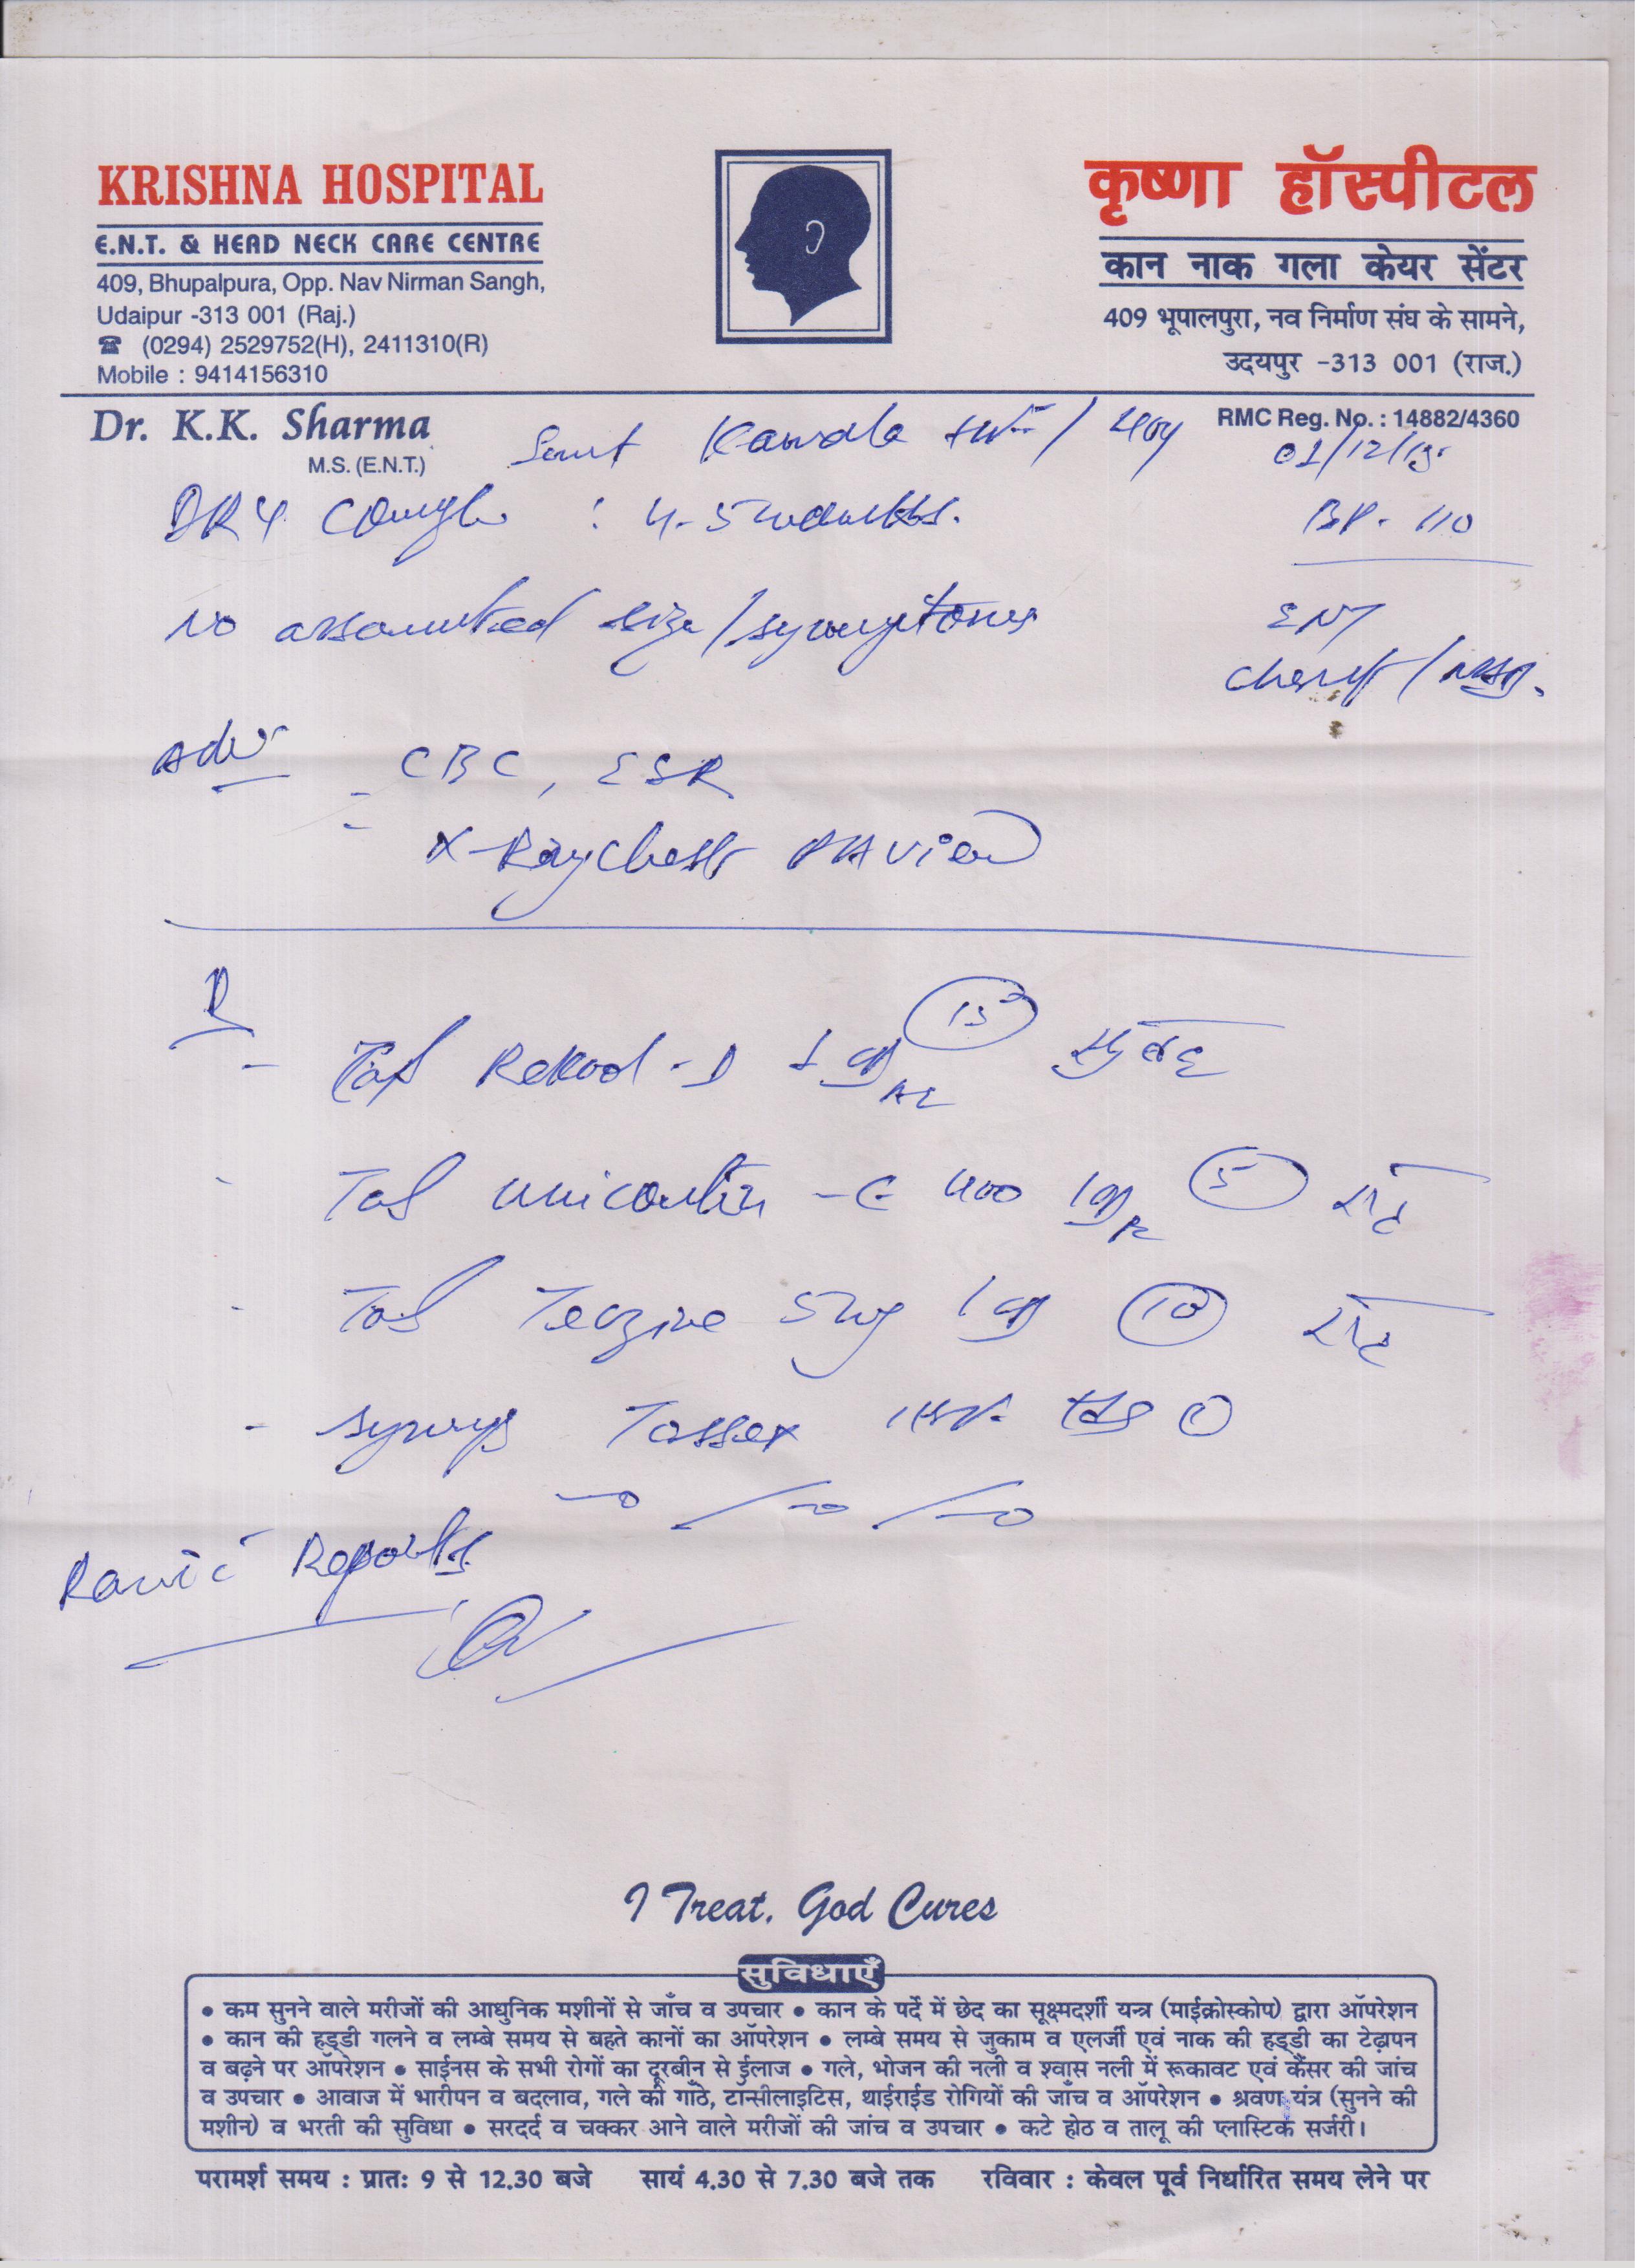 KRISHNA HOSPITAL
E.N.T. & HEAD NECK CARE CENTRE
409, Bhupalpura, Opp. Nav Nirman Sangh,
Udaipur -313 001 (Raj.)
☎ (0294) 2529752(H), 2411310(R)
Mobile : 9414156310
कृष्णा हॉस्पीटल
कान नाक गला केयर सेंटर
409 भूपालपुरा, नव निर्माण संघ के सामने,
उदयपुर -313 001 (राज.)
Dr. K.K. Sharma
M.S. (E.N.T.)
RMC Reg. No. : 14882/4360
Smt Kamala / 40y
01/12/15
DRY Cough : 4-5 months.
BP. 110
No associated sign/symptoms
ENT
Chest / NAD.
Adv
- CBC, ESR
- X-Ray Chest PA view
R
- Tab Rekool-D 1 15 सुबह
- Tab unicontin -E 400 1 5 रात
- Tab Teczine 5mg 1 10 रात
- Syrup Tossex
Reports
I Treat, God Cures
सुविधाएँ
• कम सुनने वाले मरीजों की आधुनिक मशीनों से जाँच व उपचार • कान के पर्दे में छेद का सूक्ष्मदर्शी यन्त्र (माईक्रोस्कोप) द्वारा ऑपरेशन
• कान की हड्डी गलने व लम्बे समय से बहते कानों का ऑपरेशन • लम्बे समय से जुकाम व एलर्जी एवं नाक की हड्डी का टेढ़ापन
व बढ़ने पर ऑपरेशन • साईनस के सभी रोगों का दूरबीन से ईलाज • गले, भोजन की नली व श्वास नली में रूकावट एवं कैंसर की जांच
व उपचार • आवाज में भारीपन व बदलाव, गले की गाँठे, टॉन्सीलाइटिस, थाईराईड रोगियों की जाँच व ऑपरेशन • श्रवण यंत्र (सुनने की
मशीन) व भरती की सुविधा • सरदर्द व चक्कर आने वाले मरीजों की जांच व उपचार • कटे होठ व तालू की प्लास्टिक सर्जरी।
परामर्श समय : प्रातः 9 से 12.30 बजे सायं 4.30 से 7.30 बजे तक रविवार : केवल पूर्व निर्धारित समय लेने पर